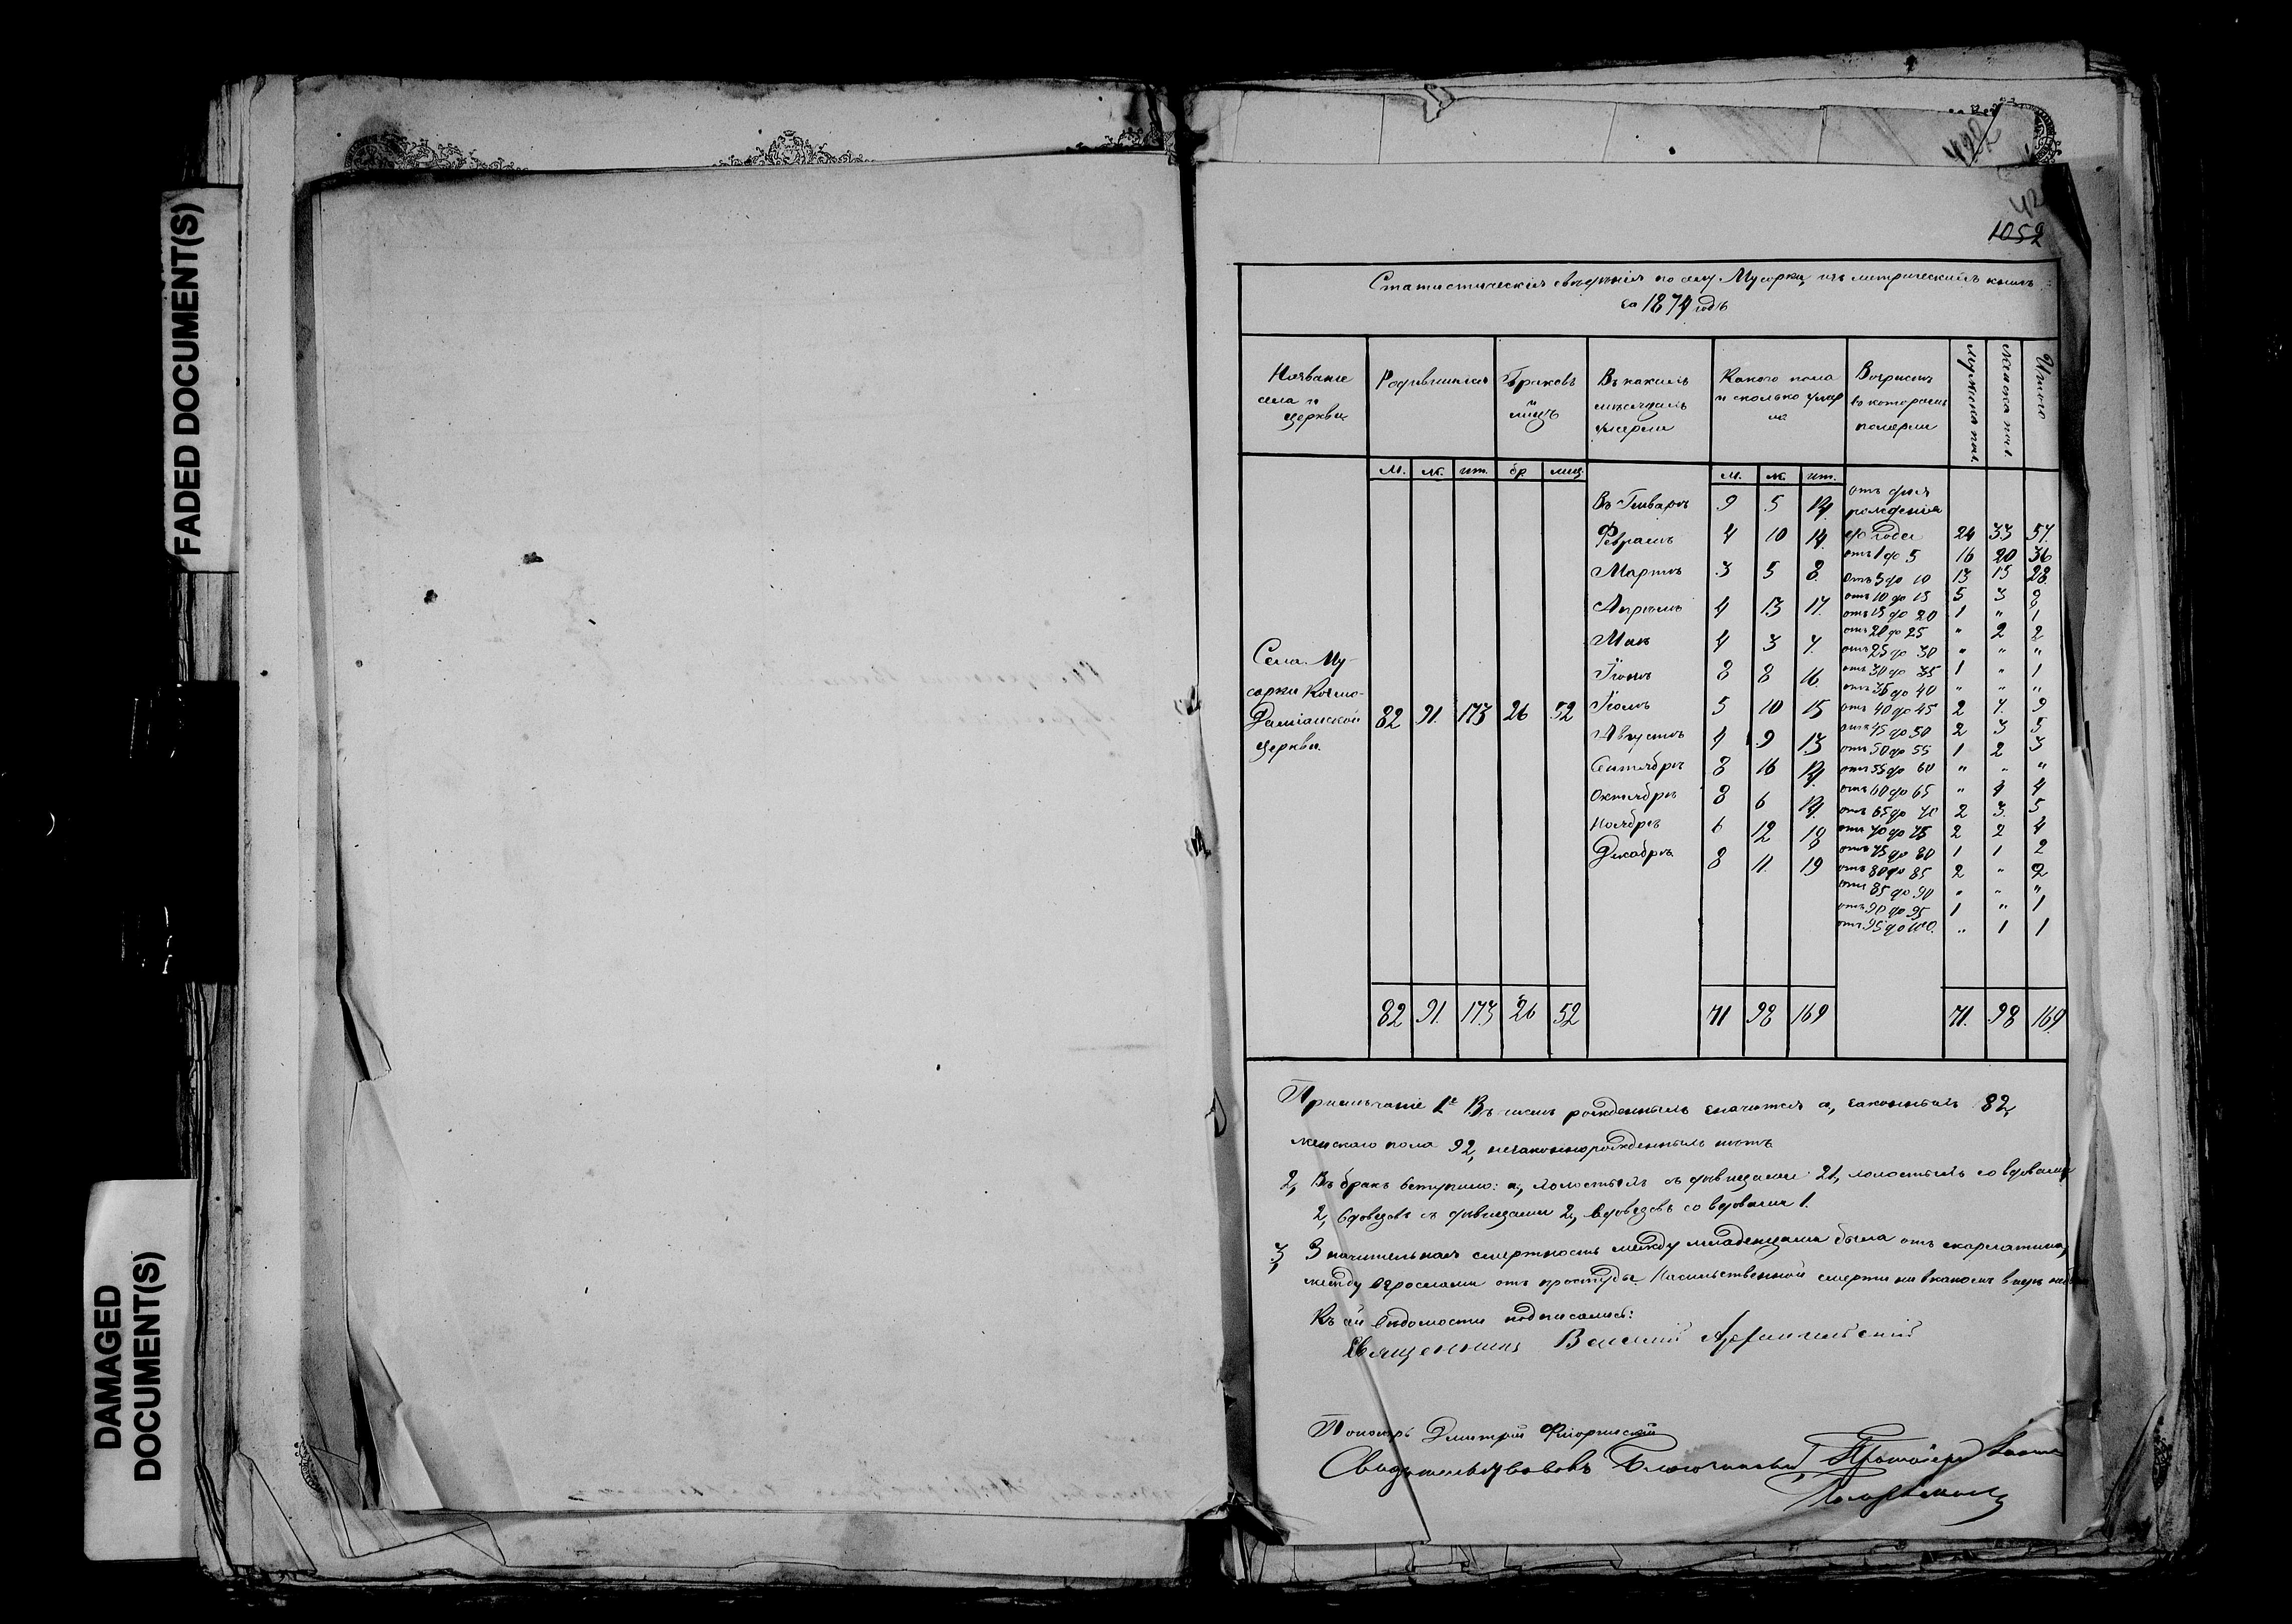 FADED DOCUMENT(S)
DAMAGED
DOCUMENT(S)
422
42
1052
Статистическія свѣденія по селу Мусорки, изъ метрическихъ книгъ
за 1874 годъ
Названіе села и церкви
Родившихся
Браковъ и лицъ
Въ какихъ мѣсяцахъ умерли
Какого пола и сколько умерло
Возрастъ въ которомъ померли
мужска пол.
женска пол.
Итого
м. ж. ит. бр. лиц. м. ж. ит.
Села Мусорки Космо-Даміанской церкви.
82 91. 173 26 52
Въ Генварѣ 9 5 14.
Февралѣ 4 10 14.
Мартѣ 3 5 8.
Апрѣлѣ 4 13 17.
Маѣ 4 3 7.
Іюнѣ 8 8 16.
Іюлѣ 5 10 15
Августѣ 4 9 13
Сентябрѣ 8 16 14.
Октябрѣ 8 6 14.
Ноябрѣ 6 12 18
Декабрѣ 8 11. 19
отъ дня рожденія
до года 24 33 57.
отъ 1 до 5 16 20 36
отъ 5 до 10 13 15 28.
отъ 10 до 15 5 3 8
отъ 15 до 20 1 " 1
отъ 20 до 25 " 2 2
отъ 25 до 30 " " "
отъ 30 до 35 1 " 1
отъ 35 до 40 " " "
отъ 40 до 45 2 7. 9
отъ 45 до 50 2 3 5
отъ 50 до 55 1 2 3
отъ 55 до 60 " " "
отъ 60 до 65 " 4 4
отъ 65 до 70 2 3. 5
отъ 70 до 75 2 2 4
отъ 75 до 80 1 1 2
отъ 80 до 85 2 " 2
отъ 85 до 90 " " "
отъ 90 до 95 1 " 1
отъ 95 до 100. " 1 1
82 91. 173 26 52 71 98 169 71. 98 169.
Примѣчаніе 1е Въ числѣ рожденныхъ значится а, законныхъ 82,
женскаго пола 92, незаконнорожденныхъ нѣтъ
2, Въ бракъ вступило: а, холостыхъ съ дѣвицами 21, холостыхъ со вдовами
2, вдовцовъ съ дѣвицами 2, вдовцовъ со вдовами 1.
3, Значительная смертность между младенцами была отъ скарлатины,
между взрослами отъ простуды. Насильственной смерти ни въ какомъ видѣ не
Къ сей вѣдомости подписались:
Священникъ Василій Архангельскій
Пономарь Дмитрій Флоринскій
Свидѣтельствовалъ Благочинный Протоіерей